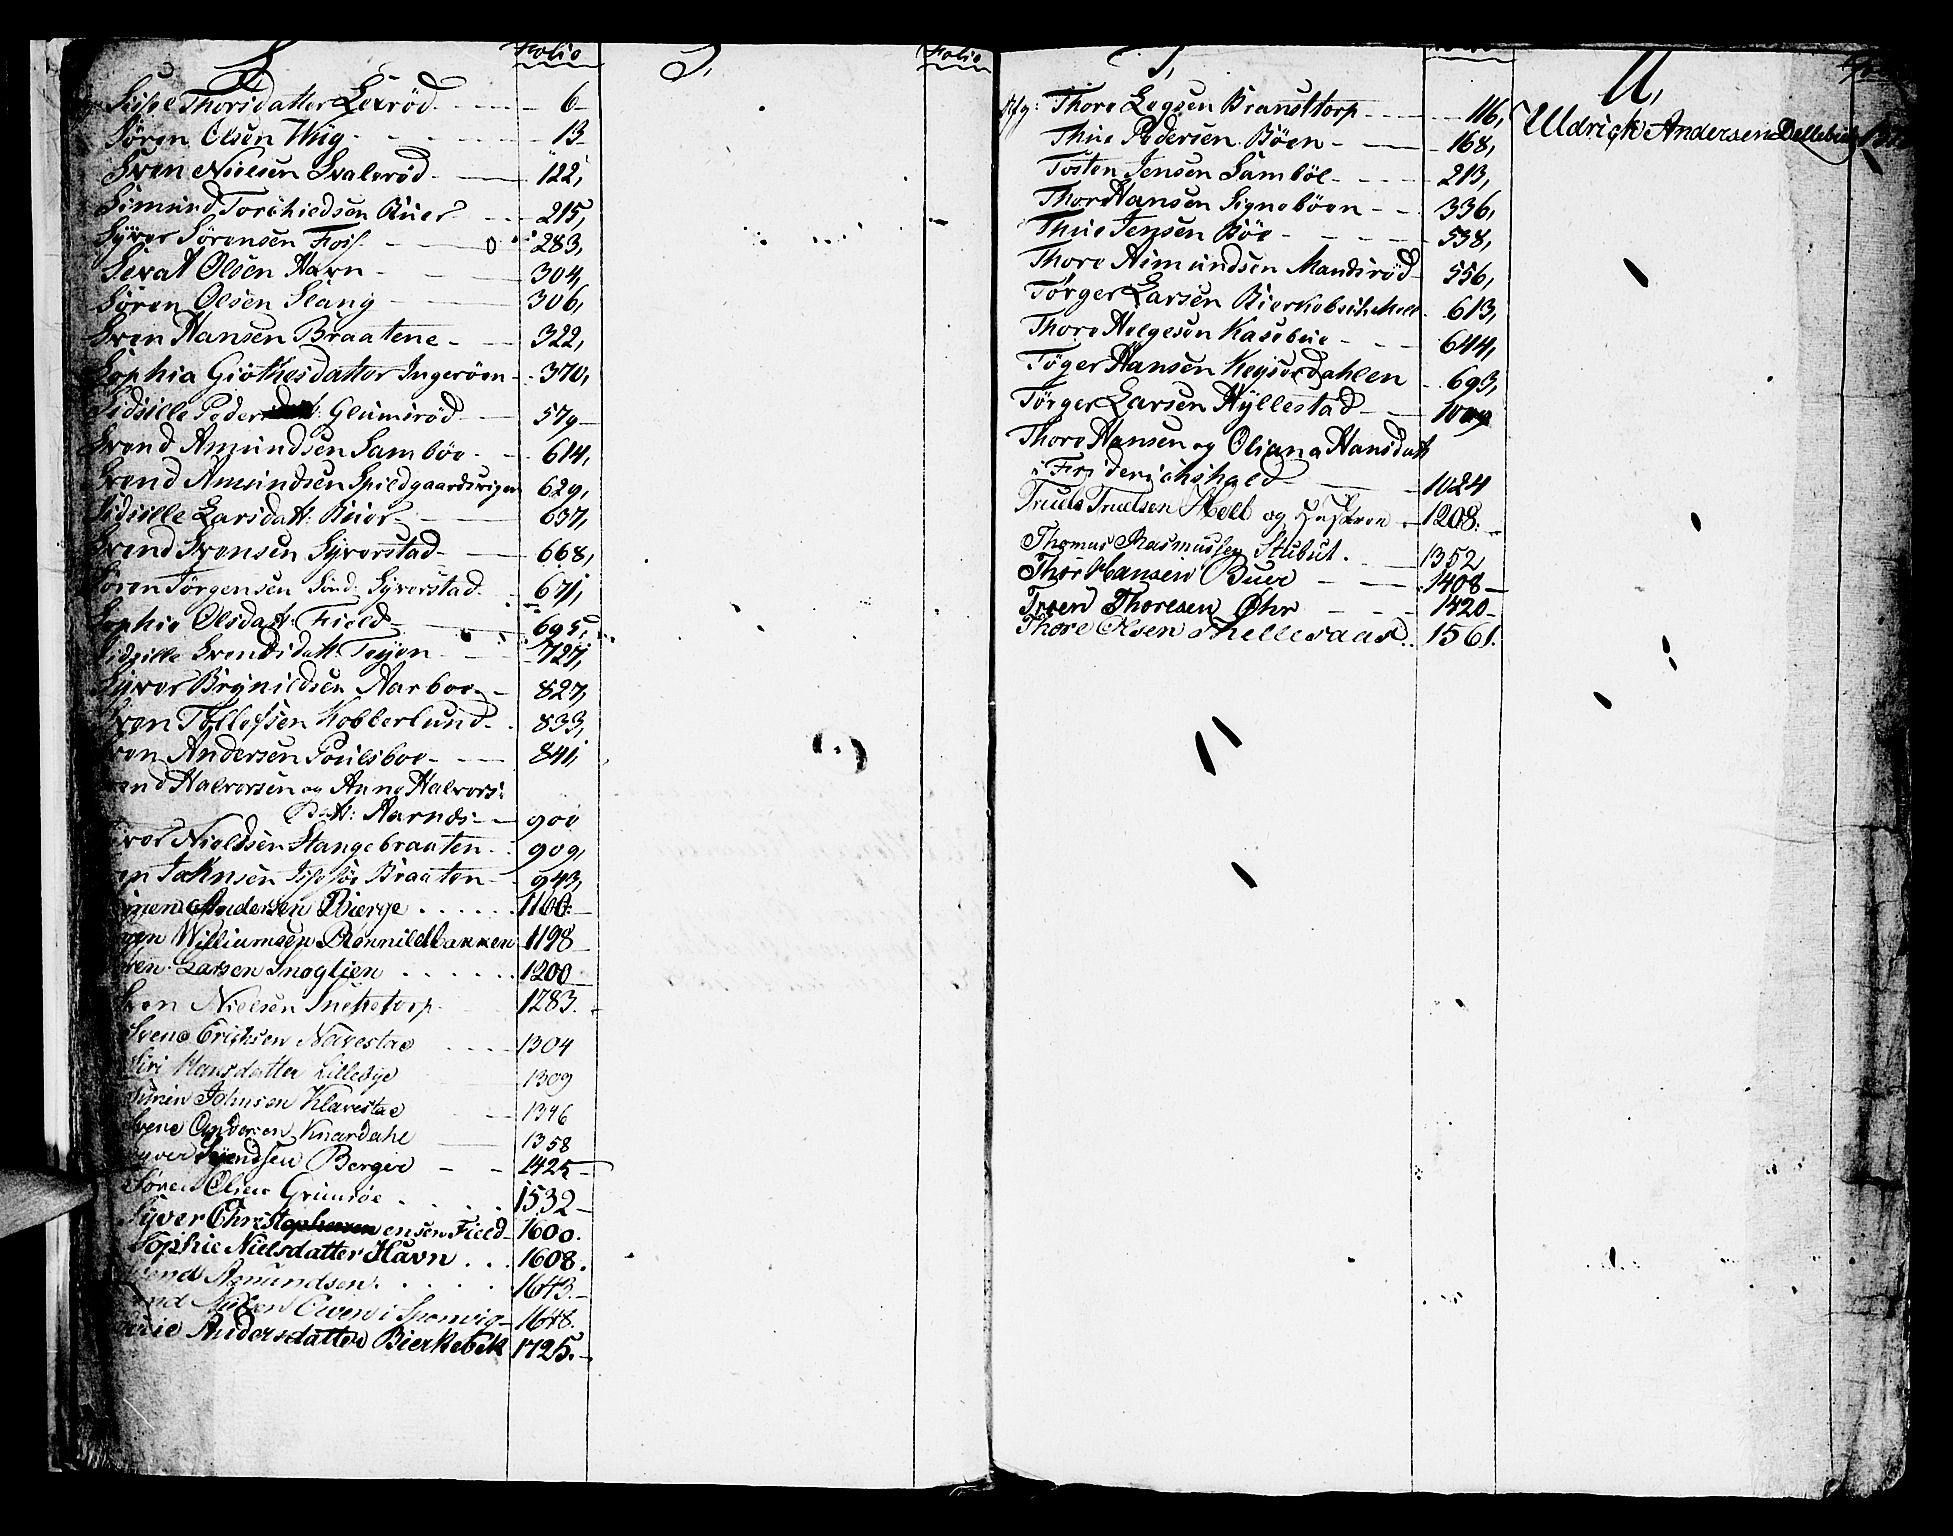 S. Folio
Sidse Thorsdatter Lexrød 6
Søren Olsen Wiig 13
Sven Nielsen Svalerød 122,
Simund Torchiedsen Buer 215,
Syver Sørensen Fos 283,
Sivat Olsen Havn 304,
Søren Olsen Slang 306,
Sven Hansen Braatene 322,
Sophia Giøthesdatter Ingerøen 370,
Sidsille Peder Glumsrød 579
Svend Amundsen Sambøe 614,
Svend Amundsen Spildgaardsvigen 629,
Sidsille Larsdatt: Buer 637,
Svend Svensen Syverstad 668,
Søren Jørgensen Sønd: Syverstad 671,
Sophie Olsdatt: Field 695,
Sidsille Svendsdatt: Tojen 727,
Syver Brynildsen Aarboe 827,
Sven Tollefsen Kobberlund 833,
Sven Andersen Poulsboe 841,
Svend Halvorsen og Anne Halvors:
Datt: Aarnds 900
Syver Nieldsen Stangebraaten 909,
Johnsen Braaten 943,
Andersen Bierge 1160
Williumsen Rønnildbakken 1198
Søren Larsen Snoglien 1200
Sven Nielsen Snetetorp 1283.
Svend Erichsen Navestad 1304
Siri Hansdatter Lillebye 1309
Simen Johnsen Klavestad 1346
Svend Andersen Knardahl 1358
Syver Svendsen Berger 1425
Søren Olsen Grimsøe 1532
Syver Christophersen ensen Field 1600.
Sophie Nielsdatter Havn 1608.
Svend Amundsen 1643.
Svend Nielsen Even i Sponvig 1648.
Andersdatter Bierkebek 1725.
S, Folio
T, Folio
Thore Legsen Brandstorp 116,
Thue Pedersen Bøen 168,
Tosten Jensen Sambøe 213,
Thor Hansen Signebøen 336,
Thue Jensen Bøe 538,
Thore Aimundsen Mandsrød 556,
Tørger Larsen 613,
Thore Helgesen Kasebue 644,
Tøger Hansen Keyserdahlen 693,
Tørger Larsen Hyllestad 1009
Thore Hansen og Oliana Hansdatt
i Friderichshald 1024
Truels Truelsen Holt og Hustroe 1208.
Thomas Rasmussen Stubut. 1352
Thor Hansen Buer 1408
Trond Thoresen Øhr 1420
Thore Olsen Skellesaas 1561.
U,
Uldrick Andersen